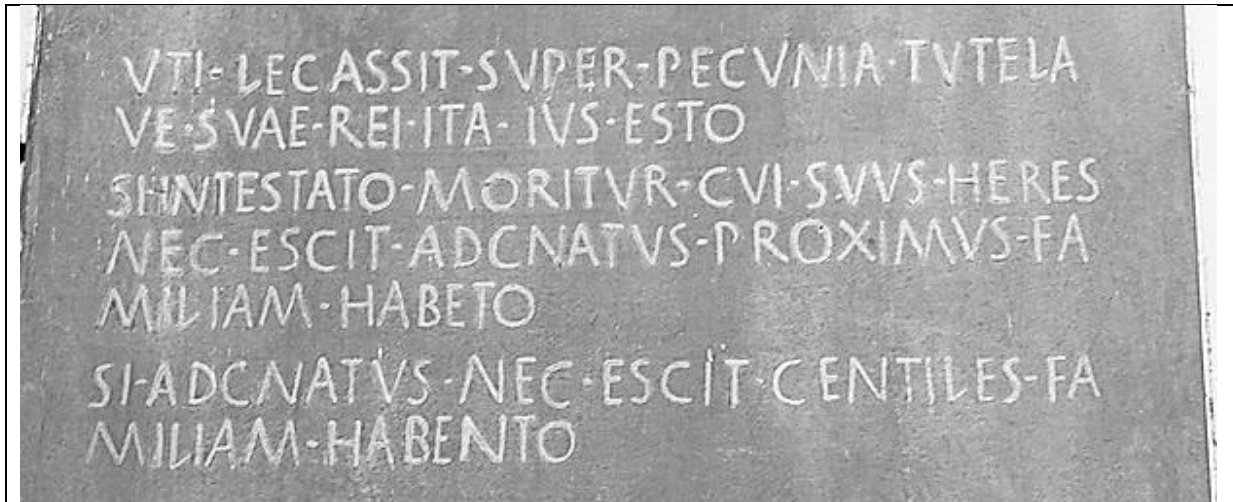 VTI-LECASSIT-SVPER-PECVNIA·TVTELA
VE·SVAE-REI-ITA-IVS-ESTO
SI-INTESTATO-MORITVR-CVI-SVVS-HERES
NEC·ESCIT-ADCNATVS-PROXIMVS-FA
MILIAM·HABETO
SI-ADCNATVS-NEC·ESCIT·CENTILES-FA
MILIAM·HABENTO